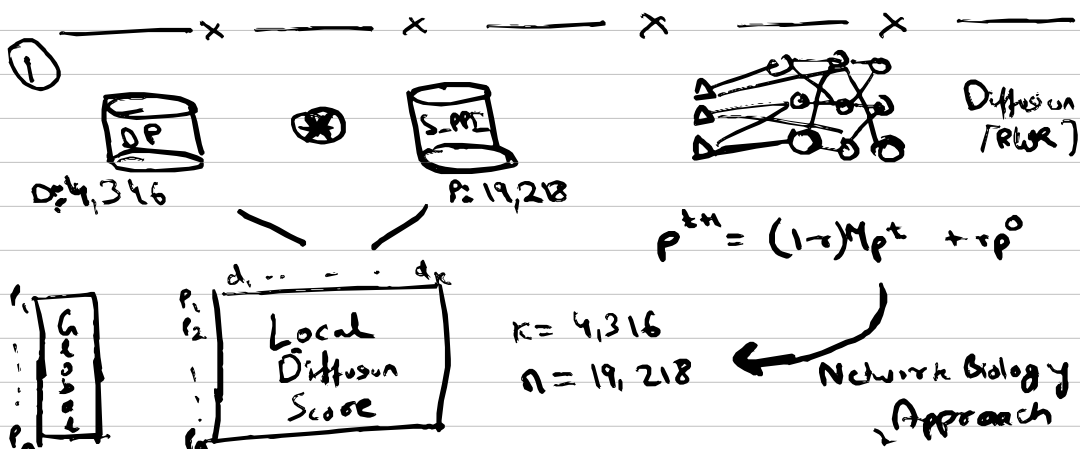 ①
DP
S_PPI
Diffusion
[RWR]
D: 4,346
P: 19,218
p^{t+1} = (1-r)Mp^t + rp^0
d₁ .. - . dₖ
P₁
Global
Pₙ
P₁
P₂
Local
Diffusun
Score
Pₙ
K = 4,316
n = 19,218
Network Biology
Approach